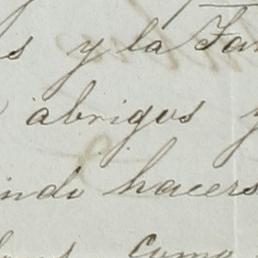 s y la Fa
abrigos y
indo hacers
Como